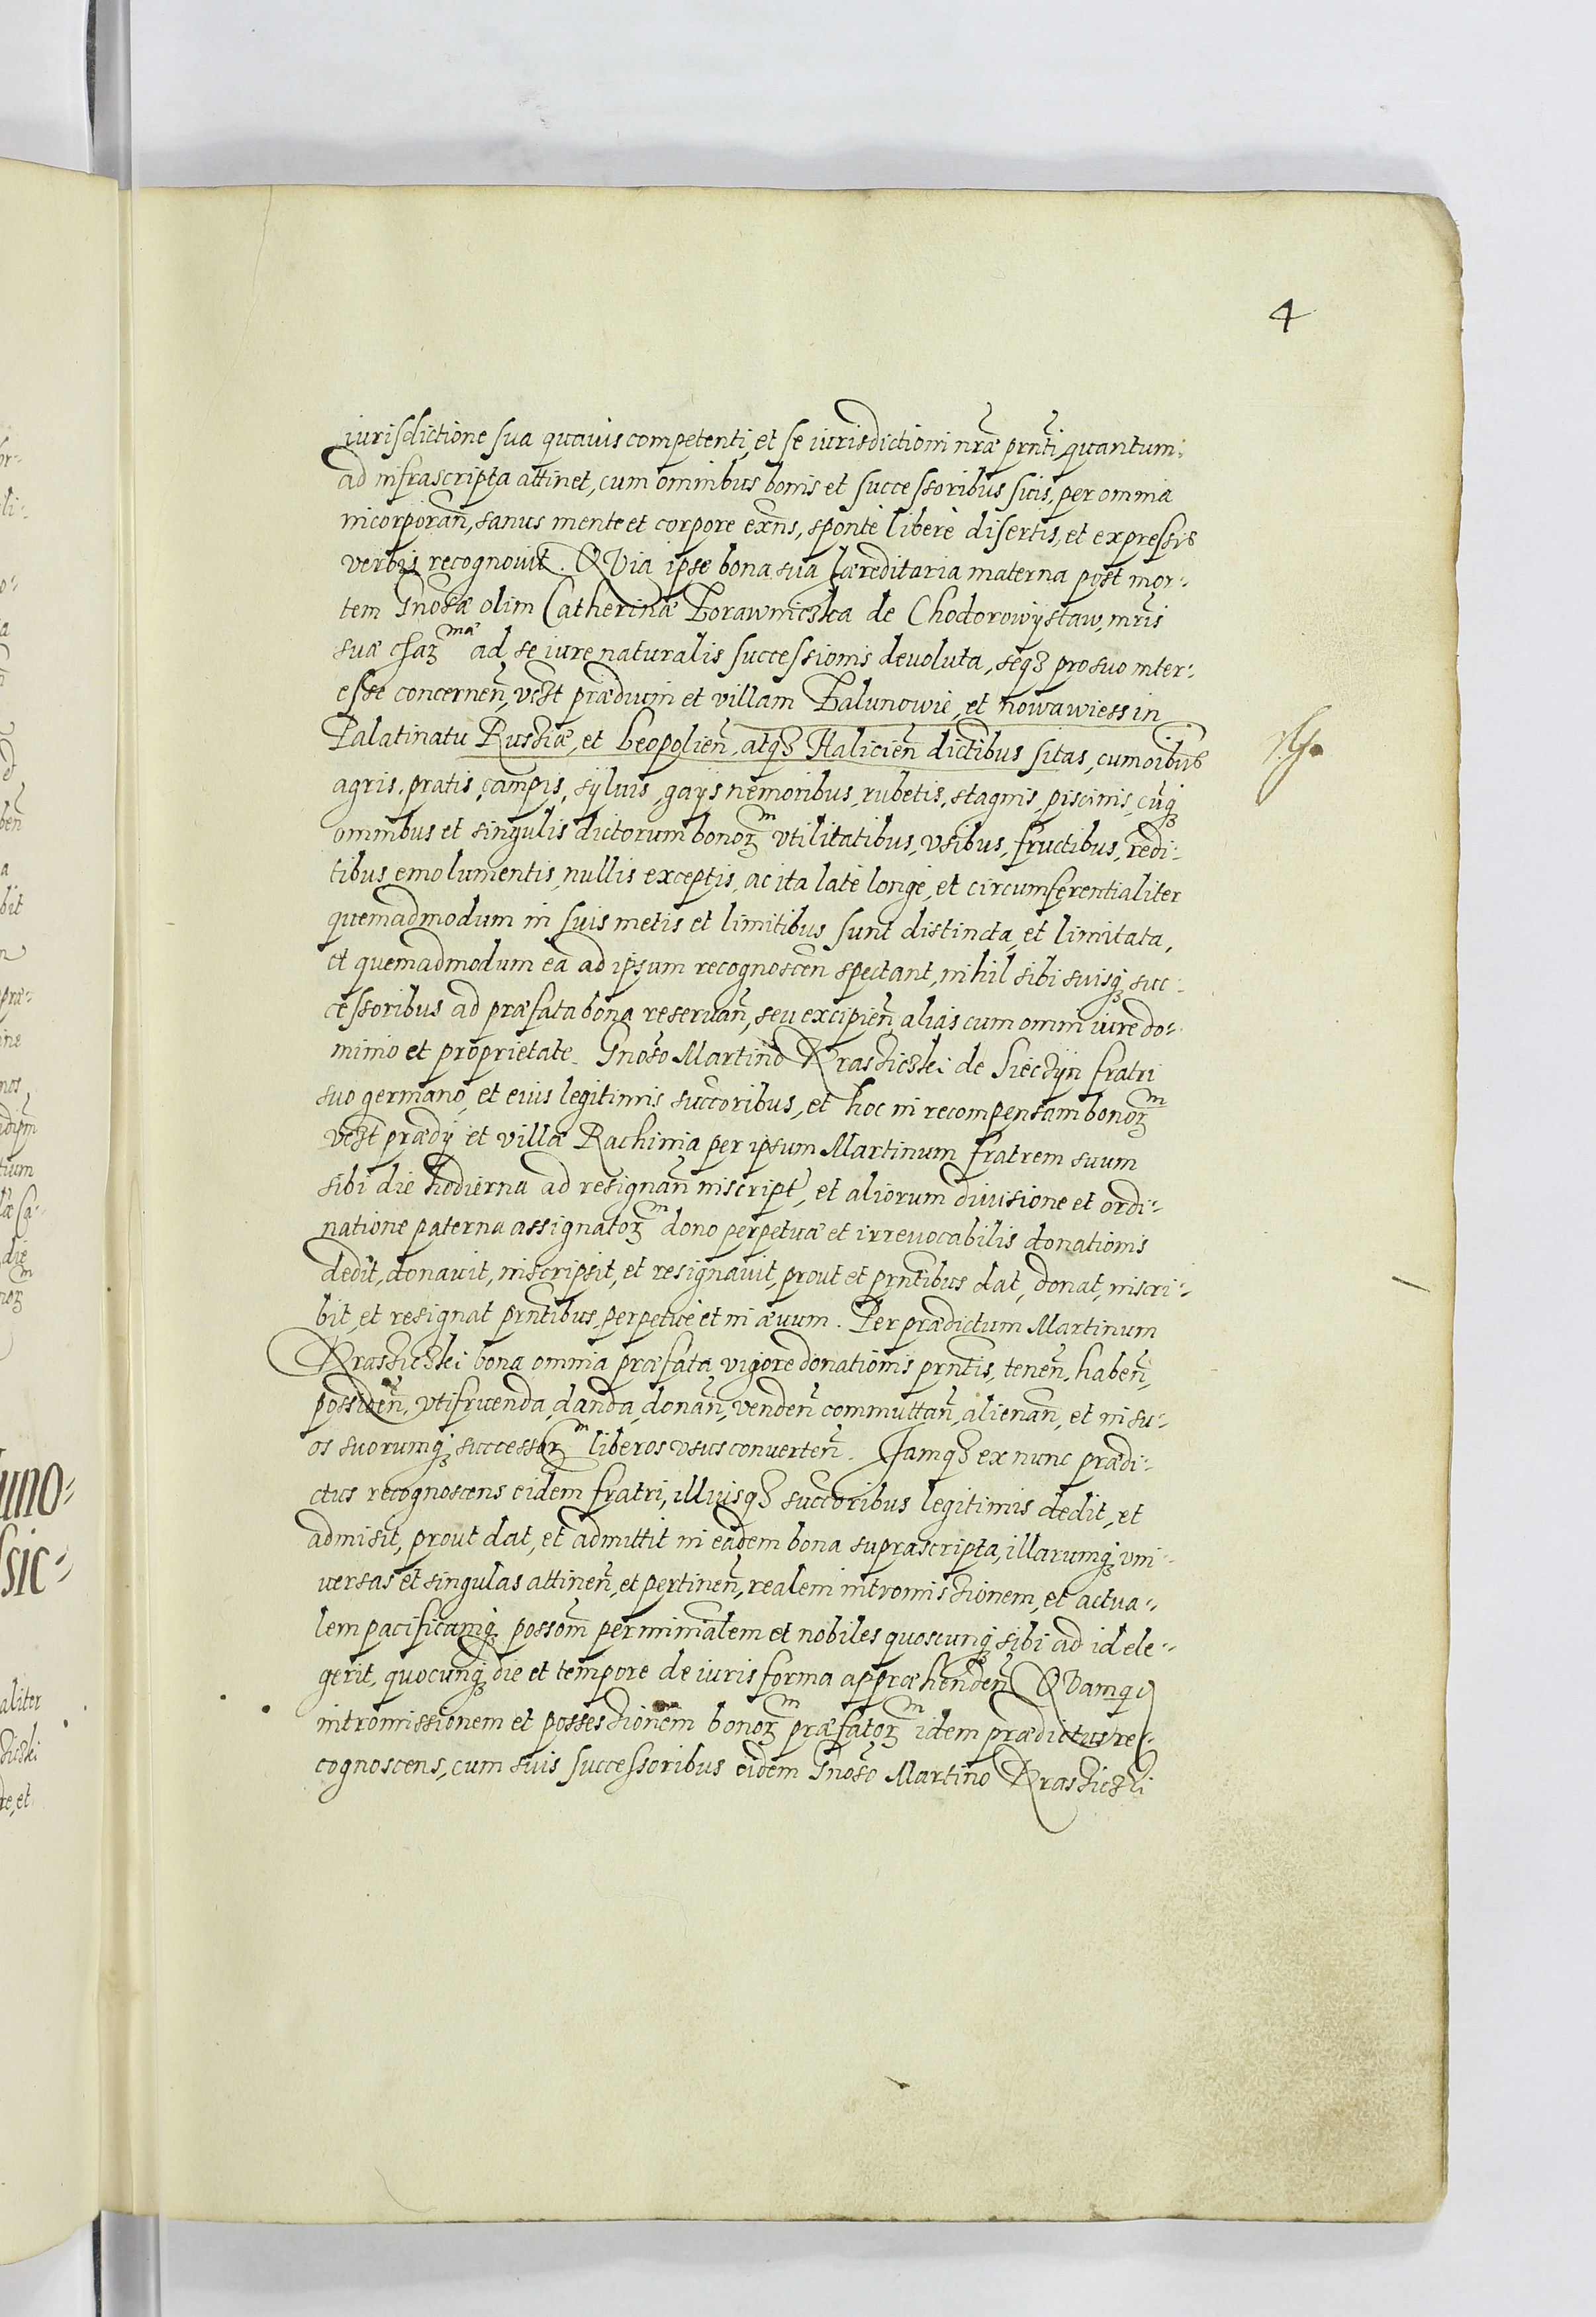 4
iurisdictione sua quauis competenti, et se iurisdictioni nr̃æ prñti, quantum
ad infrascripta attinet, cum omnibus bonis et successoribus suis, per omnia
incorporañ, sanus mente et corpore exñs, spontè liberè disertis, et expressis
verbis recognouit. QVia ipse bona sua hæreditaria materna post mor-
tem Gnosæ olim Catherinæ Zorawniczka de Chodorowijstaw, mr̃is
suæ chaꝝ^mæ ad se iure naturalis successionis deuoluta, seqꝫ pro suo inter-
esse concerneñ, vꝫt prædium et villam Załunowie, et nowawiess in
Palatinatu Russiæ, et Leopolieñ, atqꝫ Halicieñ dictibus sitas, cum oibus
agris, pratis, campis, syluis, gays nemoribus, rubetis, stagnis, piscinis, cuq̃ꝫ
omnibus et singulis dictorum bonoꝝ^m vtilitatibus, vsibus, fructibus, redi-
tibus, emolumentis, nullis exceptis, ac ita latè longè, et circumferentialiter
quemadmodum in suis metis et limitibus sunt distincta, et limitata,
et quemadmodum ea ad ipsum recognosceñ spectant, nihil sibi suisqꝫ suc-
cessoribus ad præfata bona reseruañ, seu excipieñ, aliàs cum omni iure do-
minio et proprietate. Gnoso Martino Krassiczki de Siecżyn fratri
suo germano, et eius legitimis succoribus, et hoc in recompensam bonoꝝ^m
vꝫt prædij et villæ Rachinia per ipsum Martinum fratrem suum
sibi die hodierna ad resignañ inscript, et aliorum diuisione et ordi-
natione paterna assignatoꝝ^m dono perpetuæ et irreuocabilis donationis
dedit, donauit, inscripsit, et resignauit, prout et prñtibus dat, donat, inscri-
bit, et resignat prñtibus, perpetuè et in æuum. Per prædictum Martinum
Krassiczki bona omnia præfata, vigore donationis prñtis, teneñ, habeñ,
possideñ, vtifruenda, danda, donañ, vendeñ commuttañ, alienañ, et in su-
os suorumqꝫ successoꝝ^m liberos vsus conuerteñ. Iamqꝫ ex nunc prædi-
ctus recognoscens eidem fratri, illiusqꝫ succoribus legitimis dedit, et
admisit, prout dat, et admittit in eadem bona suprascripta, illarumqꝫ vni-
uersas et singulas attineñ, et pertineñ, realem intromissionem, et actua-
lem pacificamqꝫ possom̃ per minĩalem et nobiles quoscunqꝫ sibi ad id ele-
gerit, quocunqꝫ die et tempore de iuris forma appræhendeñ QVamqꝫ
intromissionem et possessionem bonoꝝ^m præfatoꝝ^m idem prædictus re-
cognoscens, cum suis successoribus eidem Gnoso Martino Krassiczki